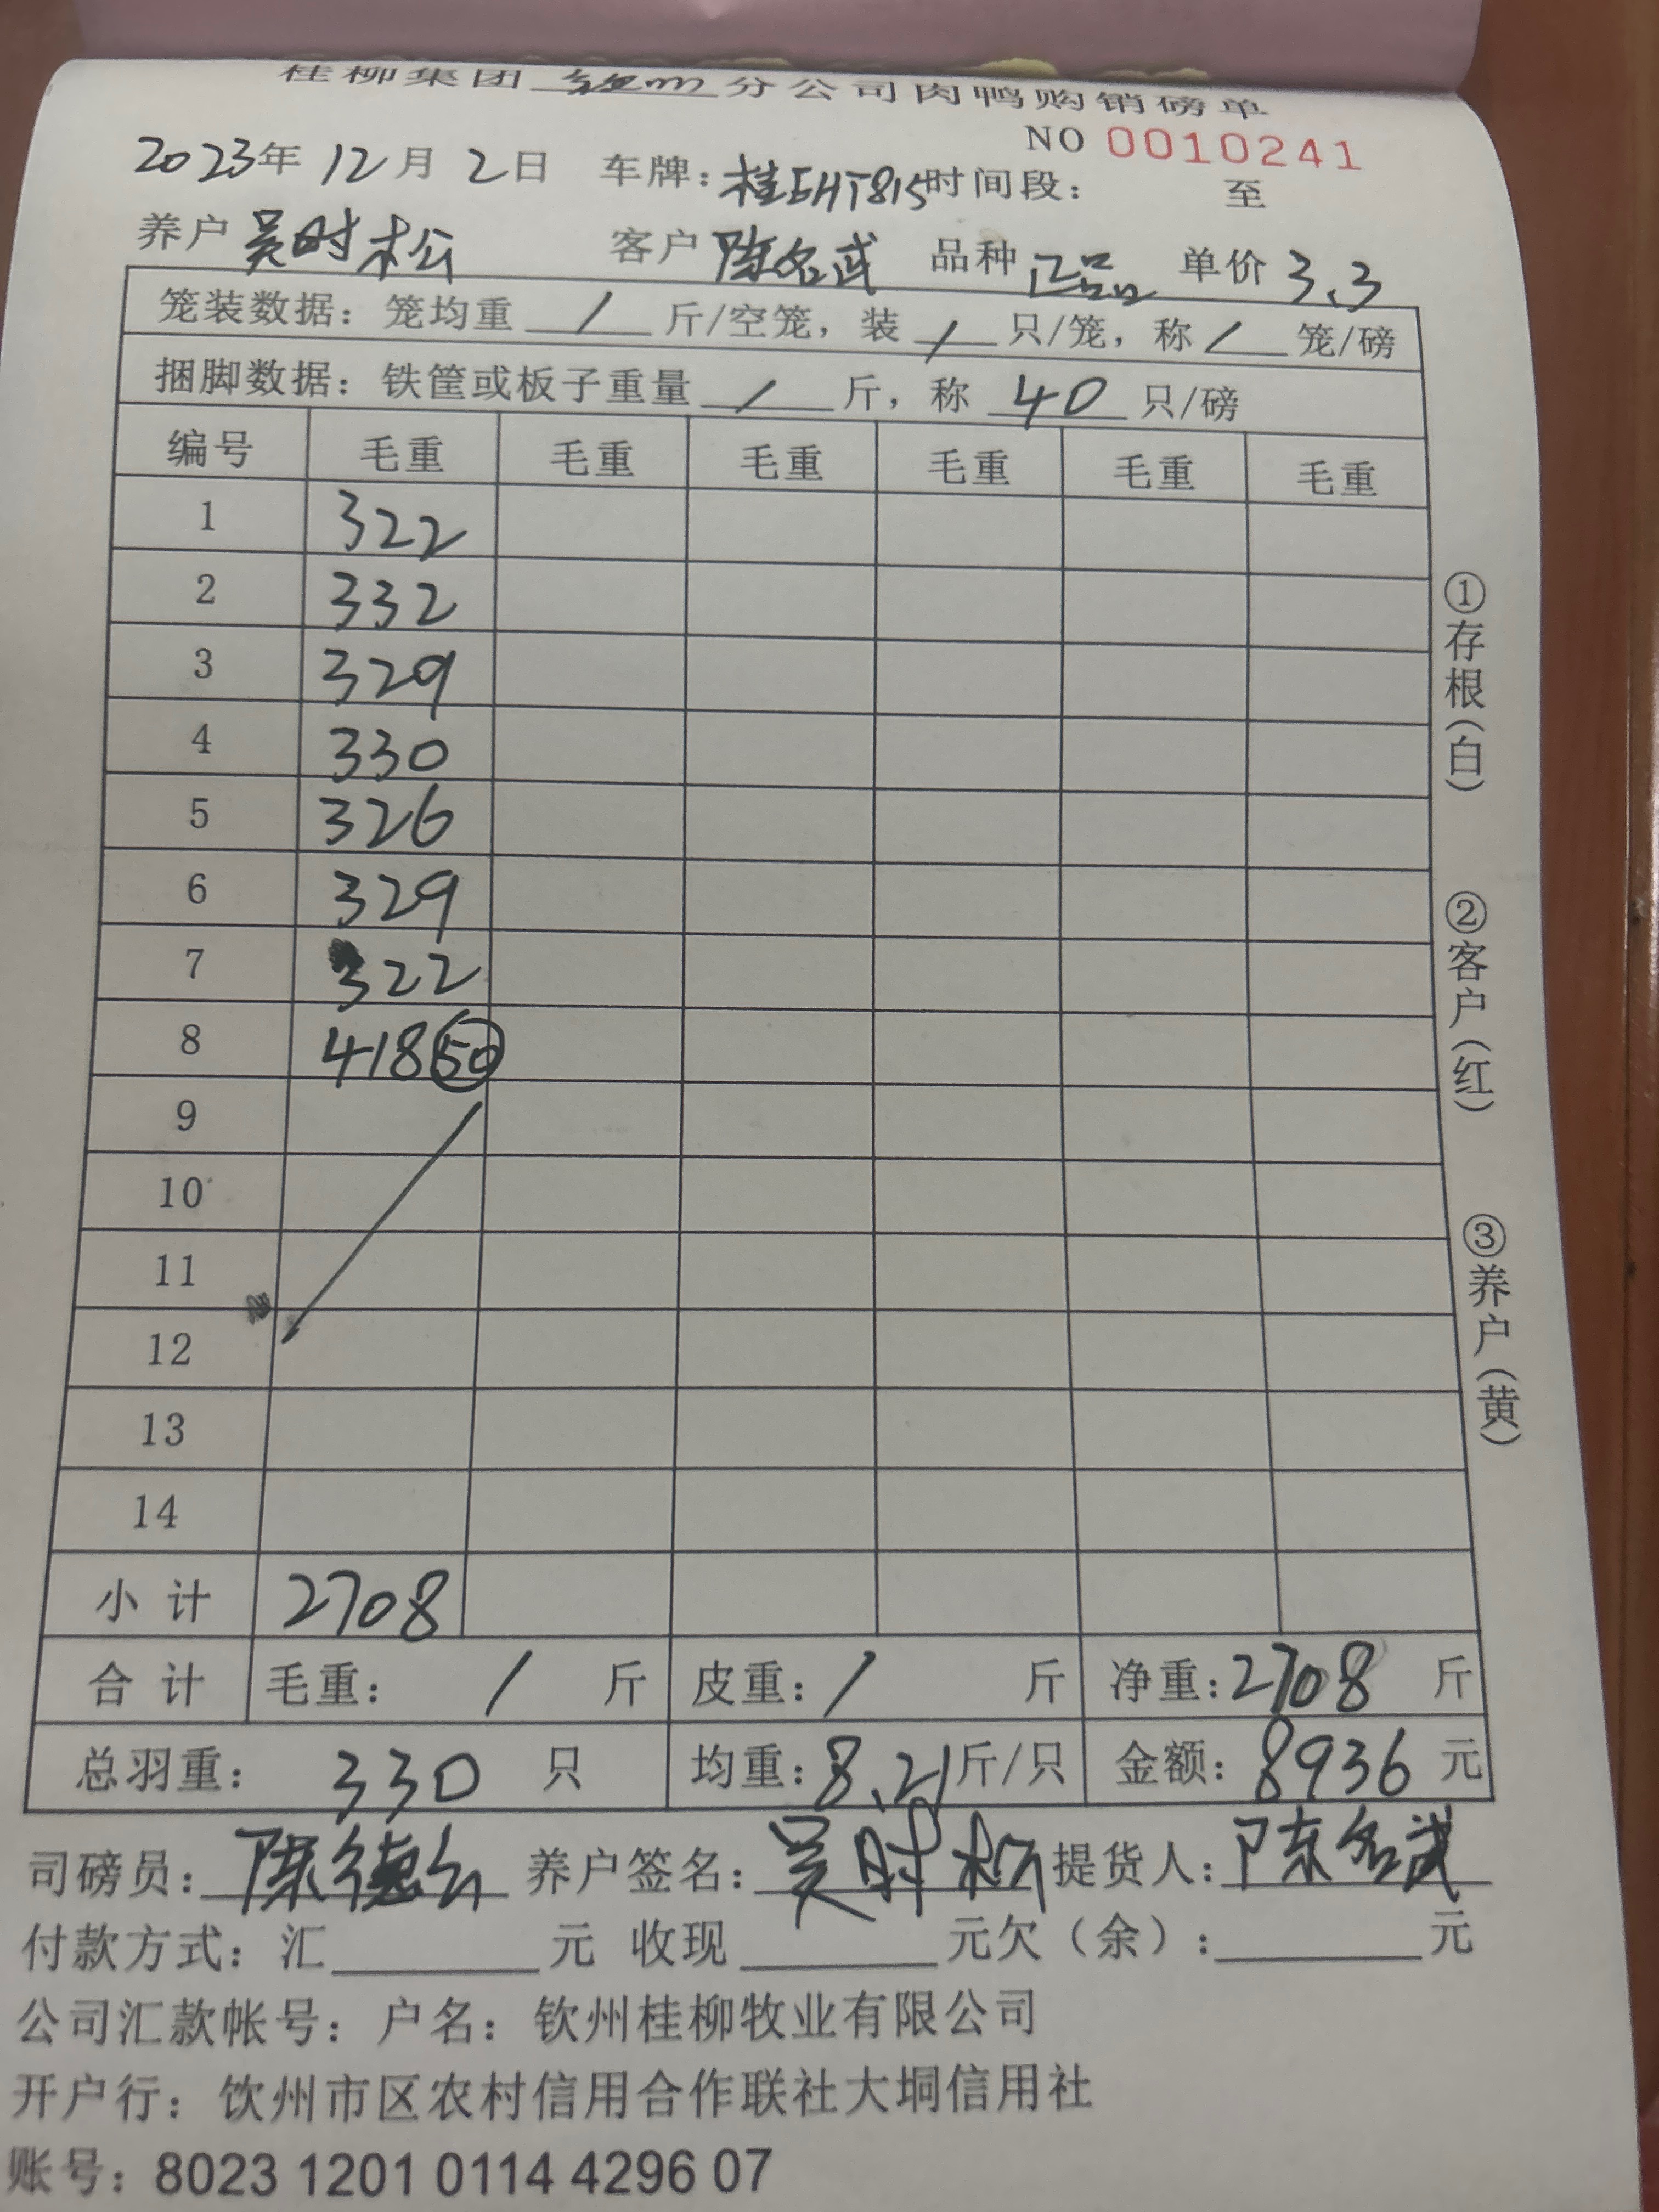 桂柳集团 分公司肉鸭购销磅单
NO 0010241
2023年 12月 2日 车牌：桂EHT815 时间段： 至
养户 吴时松 客户 陈名武 品种 正品 单价 3.3
笼装数据：笼均重 / 斤/空笼，装 / 只/笼，称 / 笼/磅
捆脚数据：铁筐或板子重量 / 斤，称 40 只/磅
编号 毛重 毛重 毛重 毛重 毛重 毛重
1 322
2 332
3 329
4 330
5 326
6 329
7 322
8 418 50
9
10
11
12
13
14
小计 2708
合计 毛重： / 斤 皮重： / 斤 净重：2708 斤
总羽重： 330 只 均重：8.21斤/只 金额：8936 元
司磅员：陈德 养户签名：吴时松 提货人：陈名武
付款方式：汇 元 收现 元欠（余）： 元
公司汇款帐号：户名：钦州桂柳牧业有限公司
开户行：钦州市区农村信用合作联社大垌信用社
账号：8023 1201 0114 4296 07
①存根（白）
②客户（红）
③养户（黄）